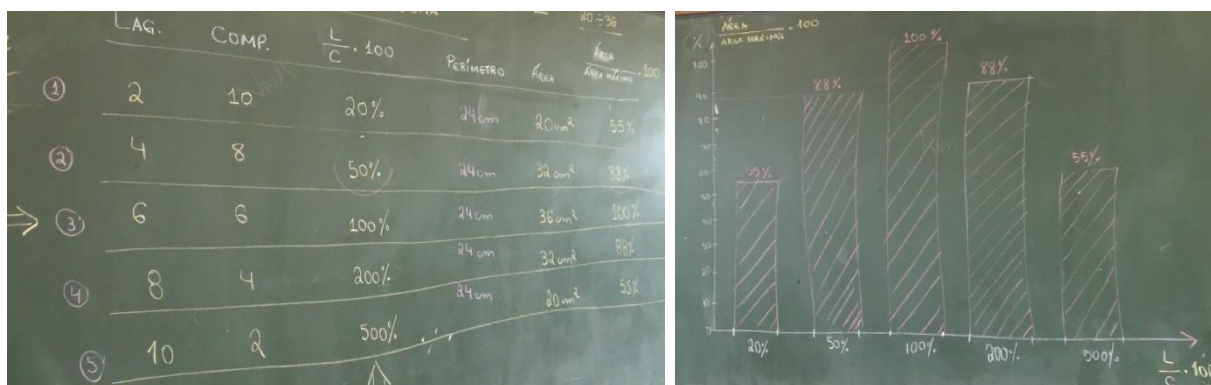 20÷36
LAG. COMP. L/C · 100 PERÍMETRO ÁREA ÁREA/ÁREA MÁXIMA · 100
① 2 10 20% 24cm 20cm² 55%
② 4 8 50% 24cm 32cm² 88%
③ 6 6 100% 24cm 36cm² 100%
④ 8 4 200% 24cm 32cm² 88%
⑤ 10 2 500% 24cm 20cm² 55%
% ÁREA/ÁREA MÁXIMA · 100
100
90
80
70
60
50
40
30
20
10
0
55% 88% 100% 88% 55%
20% 50% 100% 200% 500%
L/C · 100